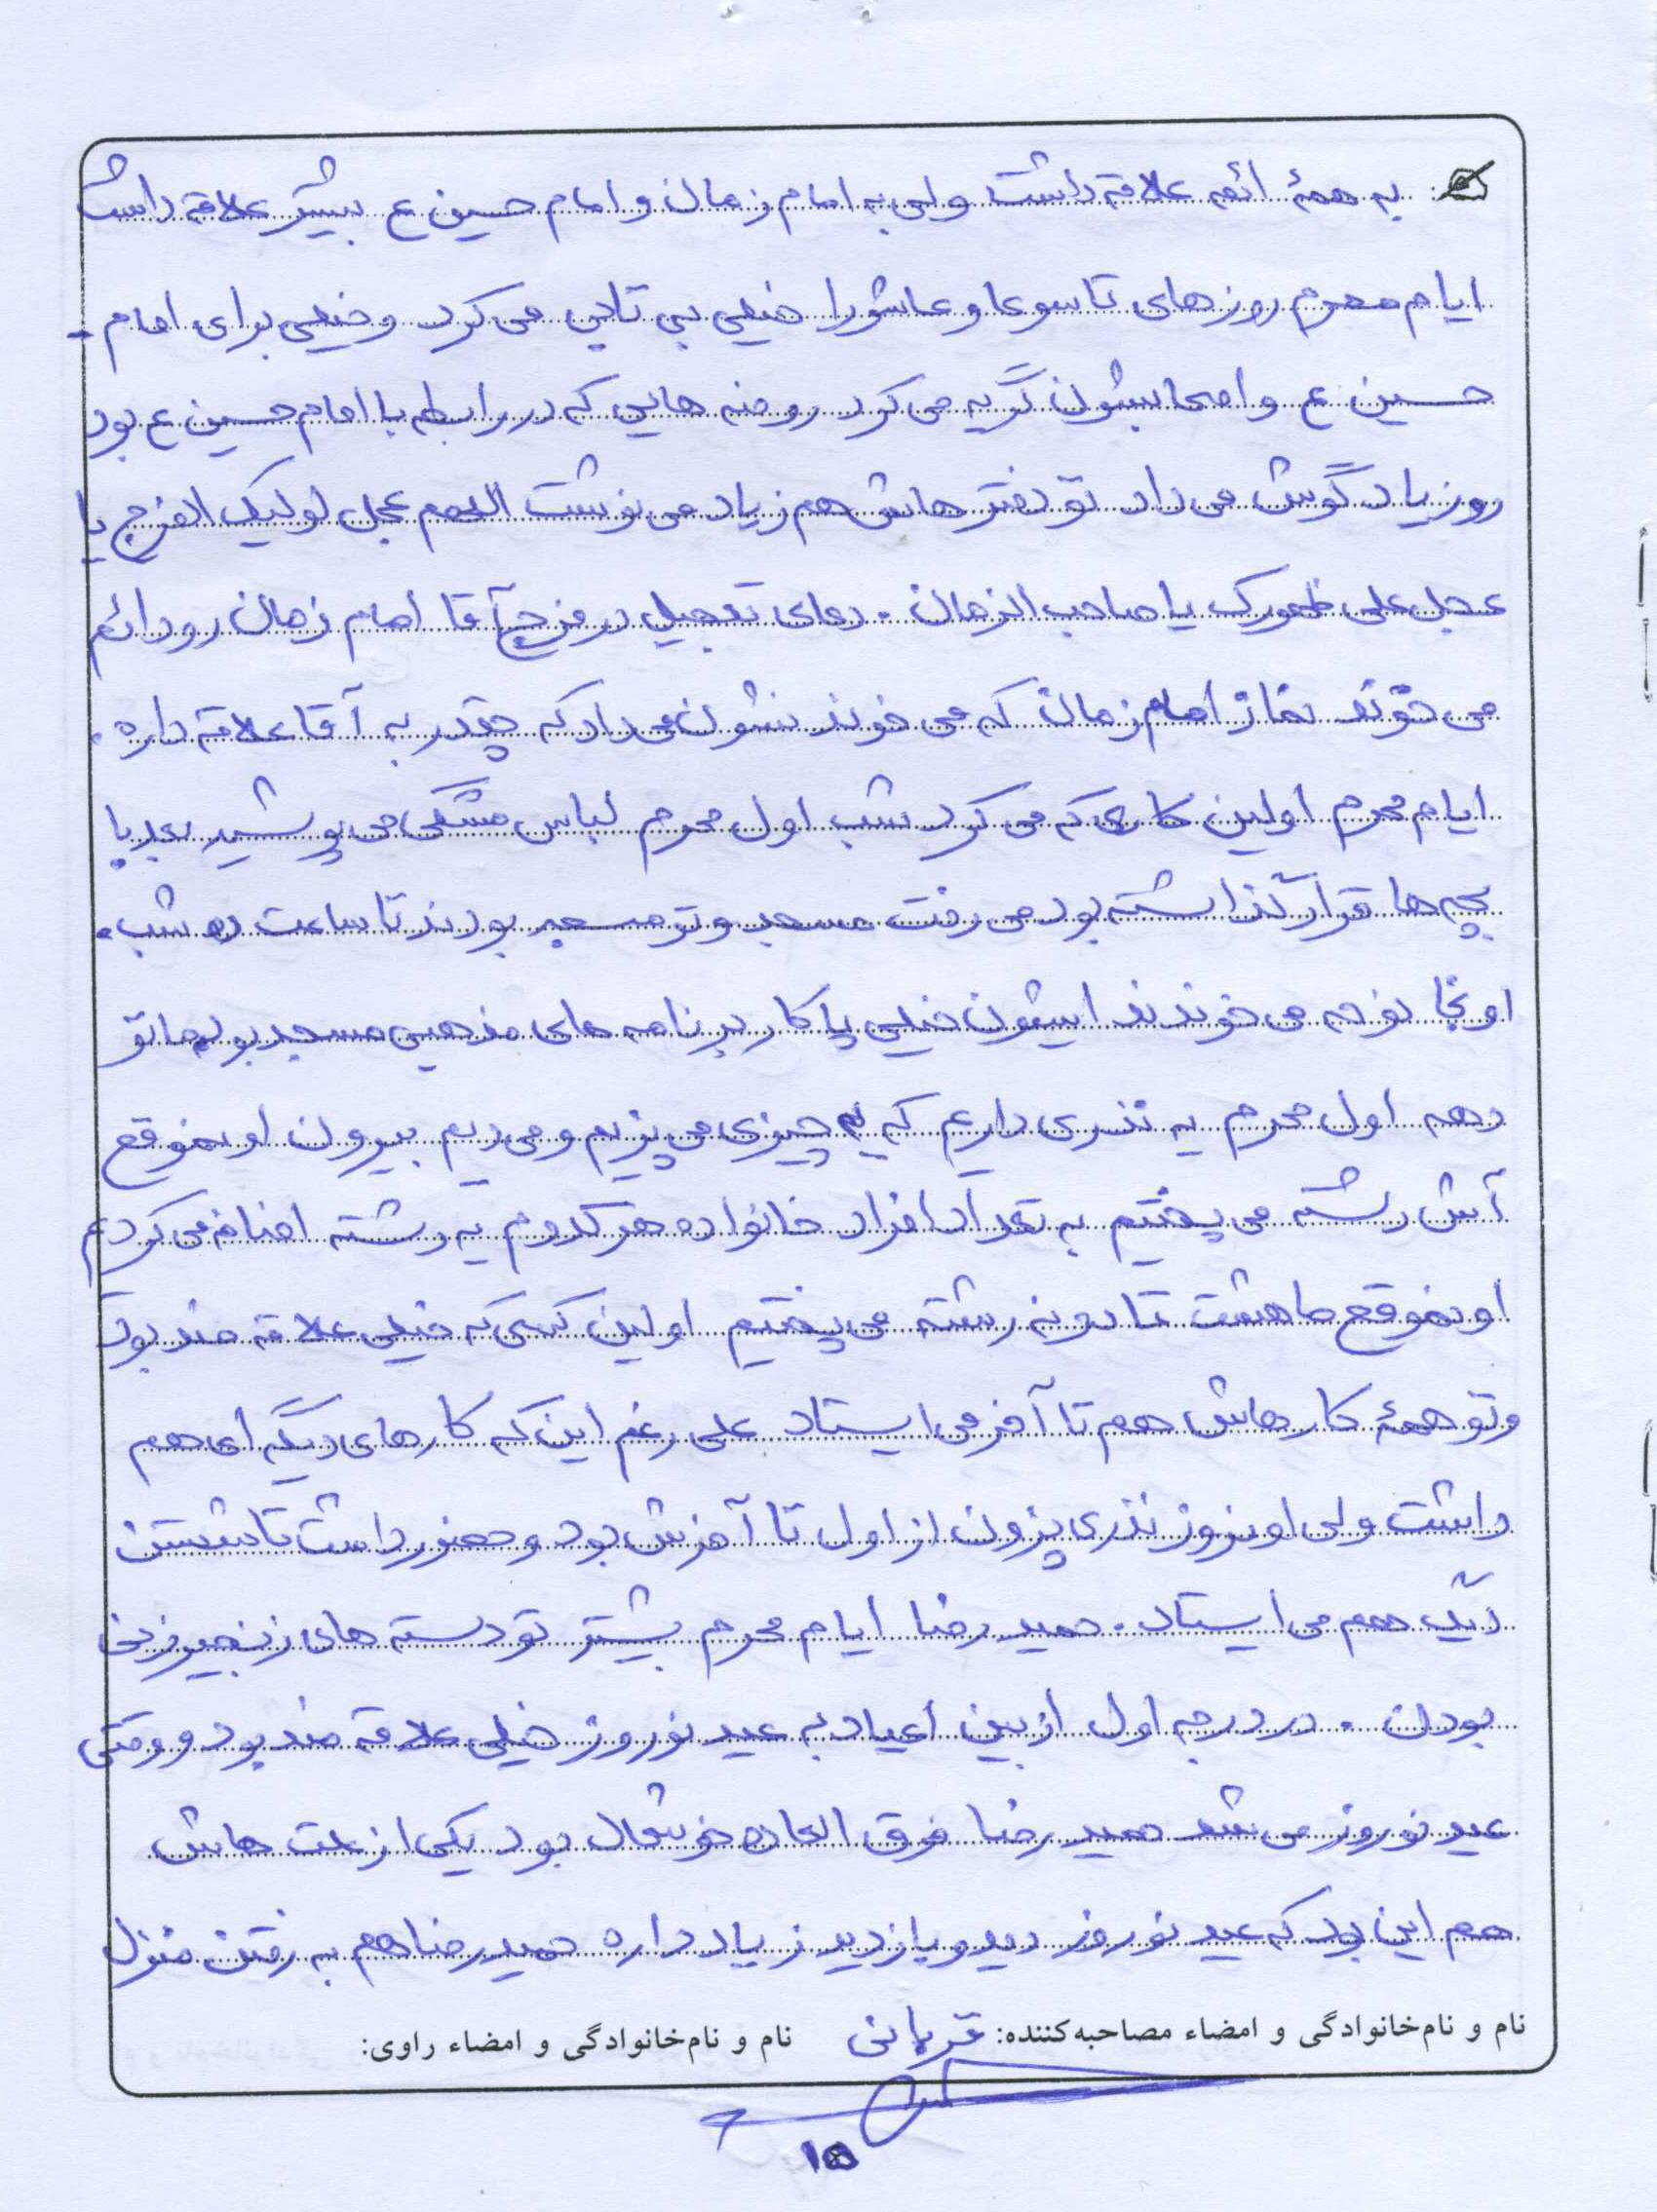 به همهٔ ائمه علاقه داشت ولی به امام زمان و امام حسین ع بیشتر علاقه داشت
ایام محرم روزهای تاسوعا و عاشورا خیلی بی تابی می کرد و خیلی برای امام -
حسین ع و اصحابشون گریه می کرد روضه هایی که در رابطه با امام حسین ع بود
رو زیاد گوش می داد تو دفترهاش هم زیاد می نوشت اللهم عجل لولیک الفرج یا
عجل علی ظهورک یا صاحب الزمان . دعای تعجیل در فرج آقا امام زمان رو دائم
می خوند نماز امام زمان که می خوند نشون می داد که چقدر به آقا علاقه داره .
ایام محرم اولین کاری که می کرد شب اول محرم لباس مشکی می پوشید بعد با
بچه ها قرار گذاشته بود می رفت مسجد و تو مسجد بودند تا ساعت ده شب .
اونجا نوحه می خوندند ایشون خیلی پا کار برنامه های مذهبی مسجد بود ما تو
دهه اول محرم یه نذری داریم که یه چیزی می پزیم و می دیم بیرون اونموقع
آش رشته می پختیم به تعداد افراد خانواده هر کدوم یه رشته اضافه می کردیم
اونموقع ما هشت تا دونه رشته می پختیم اولین کسی که خیلی علاقه مند بود
و تو همهٔ کارهاش هم تا آخر می ایستاد علی رغم این که کارهای دیگه ای هم
داشت ولی اونروز نذری پزون از اول تا آخرش بود و حضور داشت تا شستن
دیگ هم می ایستاد . حمید رضا ایام محرم بیشتر تو دسته های زنجیر زنی
بودن . در درجه اول از بین اعیاد به عید نوروز خیلی علاقه مند بود و وقتی
عید نوروز می شد حمید رضا فوق العاده خوشحال بود یکی از علت هاش
هم این بود که عید نوروز دید و بازدید زیاد داره حمید رضا هم به رفتن منزل
نام و نام‌خانوادگی و امضاء مصاحبه‌کننده: قربانی نام و نام‌خانوادگی و امضاء راوی:
۱۵